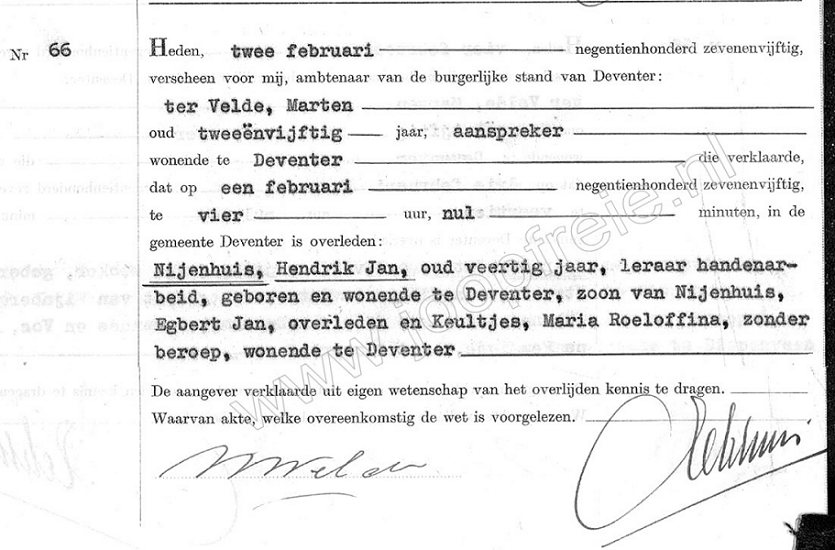 Nr 66 Heden, twee februari negentienhonderd zevenenvijftig,
verscheen voor mij, ambtenaar van de burgerlijke stand van Deventer:
ter Velde, Marten
oud tweeënvijftig jaar, aanspreker
wonende te Deventer die verklaarde,
dat op een februari negentienhonderd zevenenvijftig,
te vier uur, nul minuten, in de
gemeente Deventer is overleden:
Nijenhuis, Hendrik Jan, oud veertig jaar, leraar handenar-
beid, geboren en wonende te Deventer, zoon van Nijenhuis,
Egbert Jan, overleden en Keultjes, Maria Roeloffina, zonder
beroep, wonende te Deventer
De aangever verklaarde uit eigen wetenschap van het overlijden kennis te dragen.
Waarvan akte, welke overeenkomstig de wet is voorgelezen.
www.joopfreie.nl